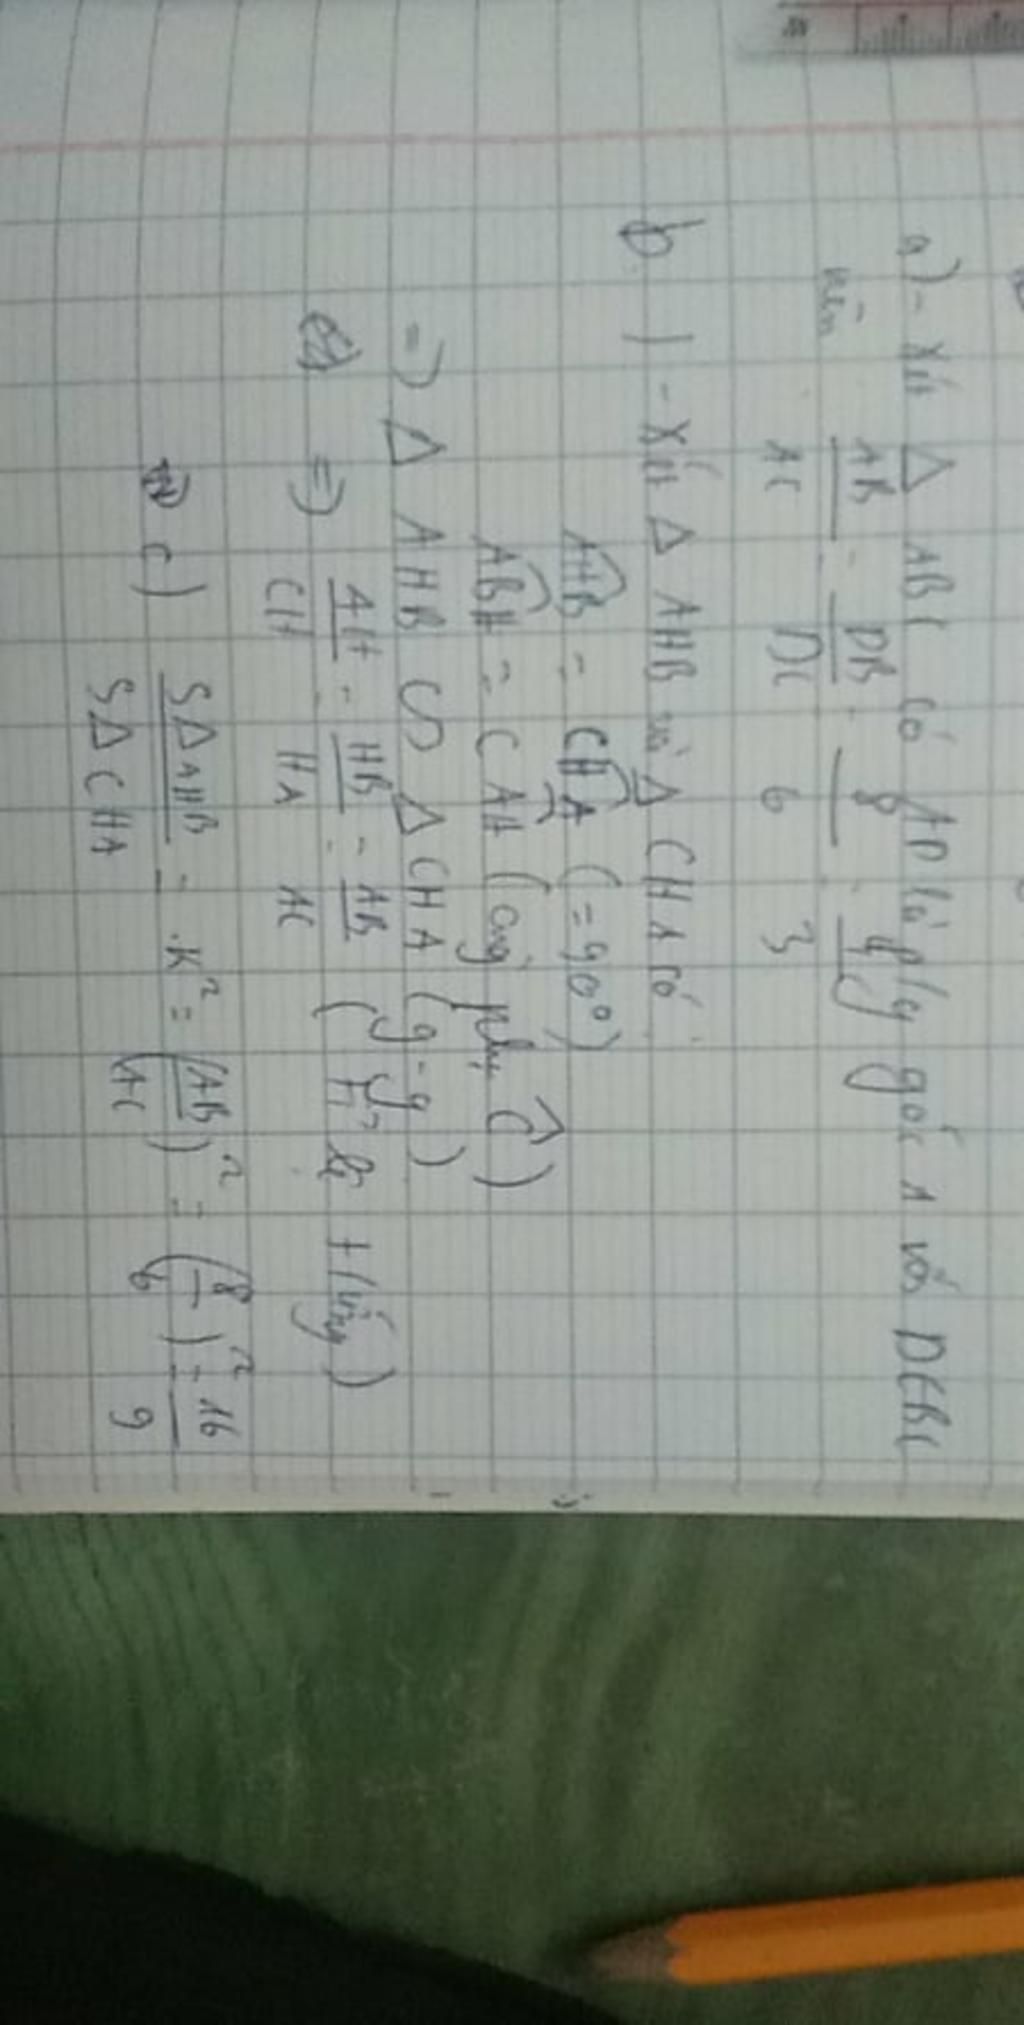 a) - Xét Δ ABC có AD là p/g góc A với D∈BC
nên AB/AC = DB/DC = 8/6 = 4/3
b) - Xét Δ AHB và Δ CHA có
AHB = CHA (= 90°)
ABH = CAH (cùng phụ C)
=> Δ AHB ∽ Δ CHA (g-g)
=> AH/CH = HB/HA = AB/AC ( t/ứng)
c) SΔAHB/SΔCHA = K² = (AB/AC)² = (8/6)² = 16/9